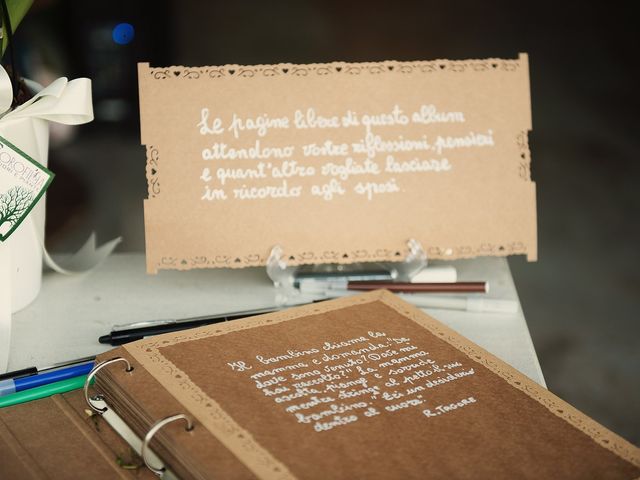 Le pagine libere di questo album
attendono vostre riflessioni, pensieri
e quant'altro vogliate lasciare
in ricordo agli sposi.
Il bambino chiama la
mamma e domanda: "Da
dove sono venuto? Dove mi
hai raccolto?" La mamma
ascolta, piange e sorride
mentre stringe al petto il suo
bambino. "Eri un desiderio
dentro al cuore"
R. TAGORE